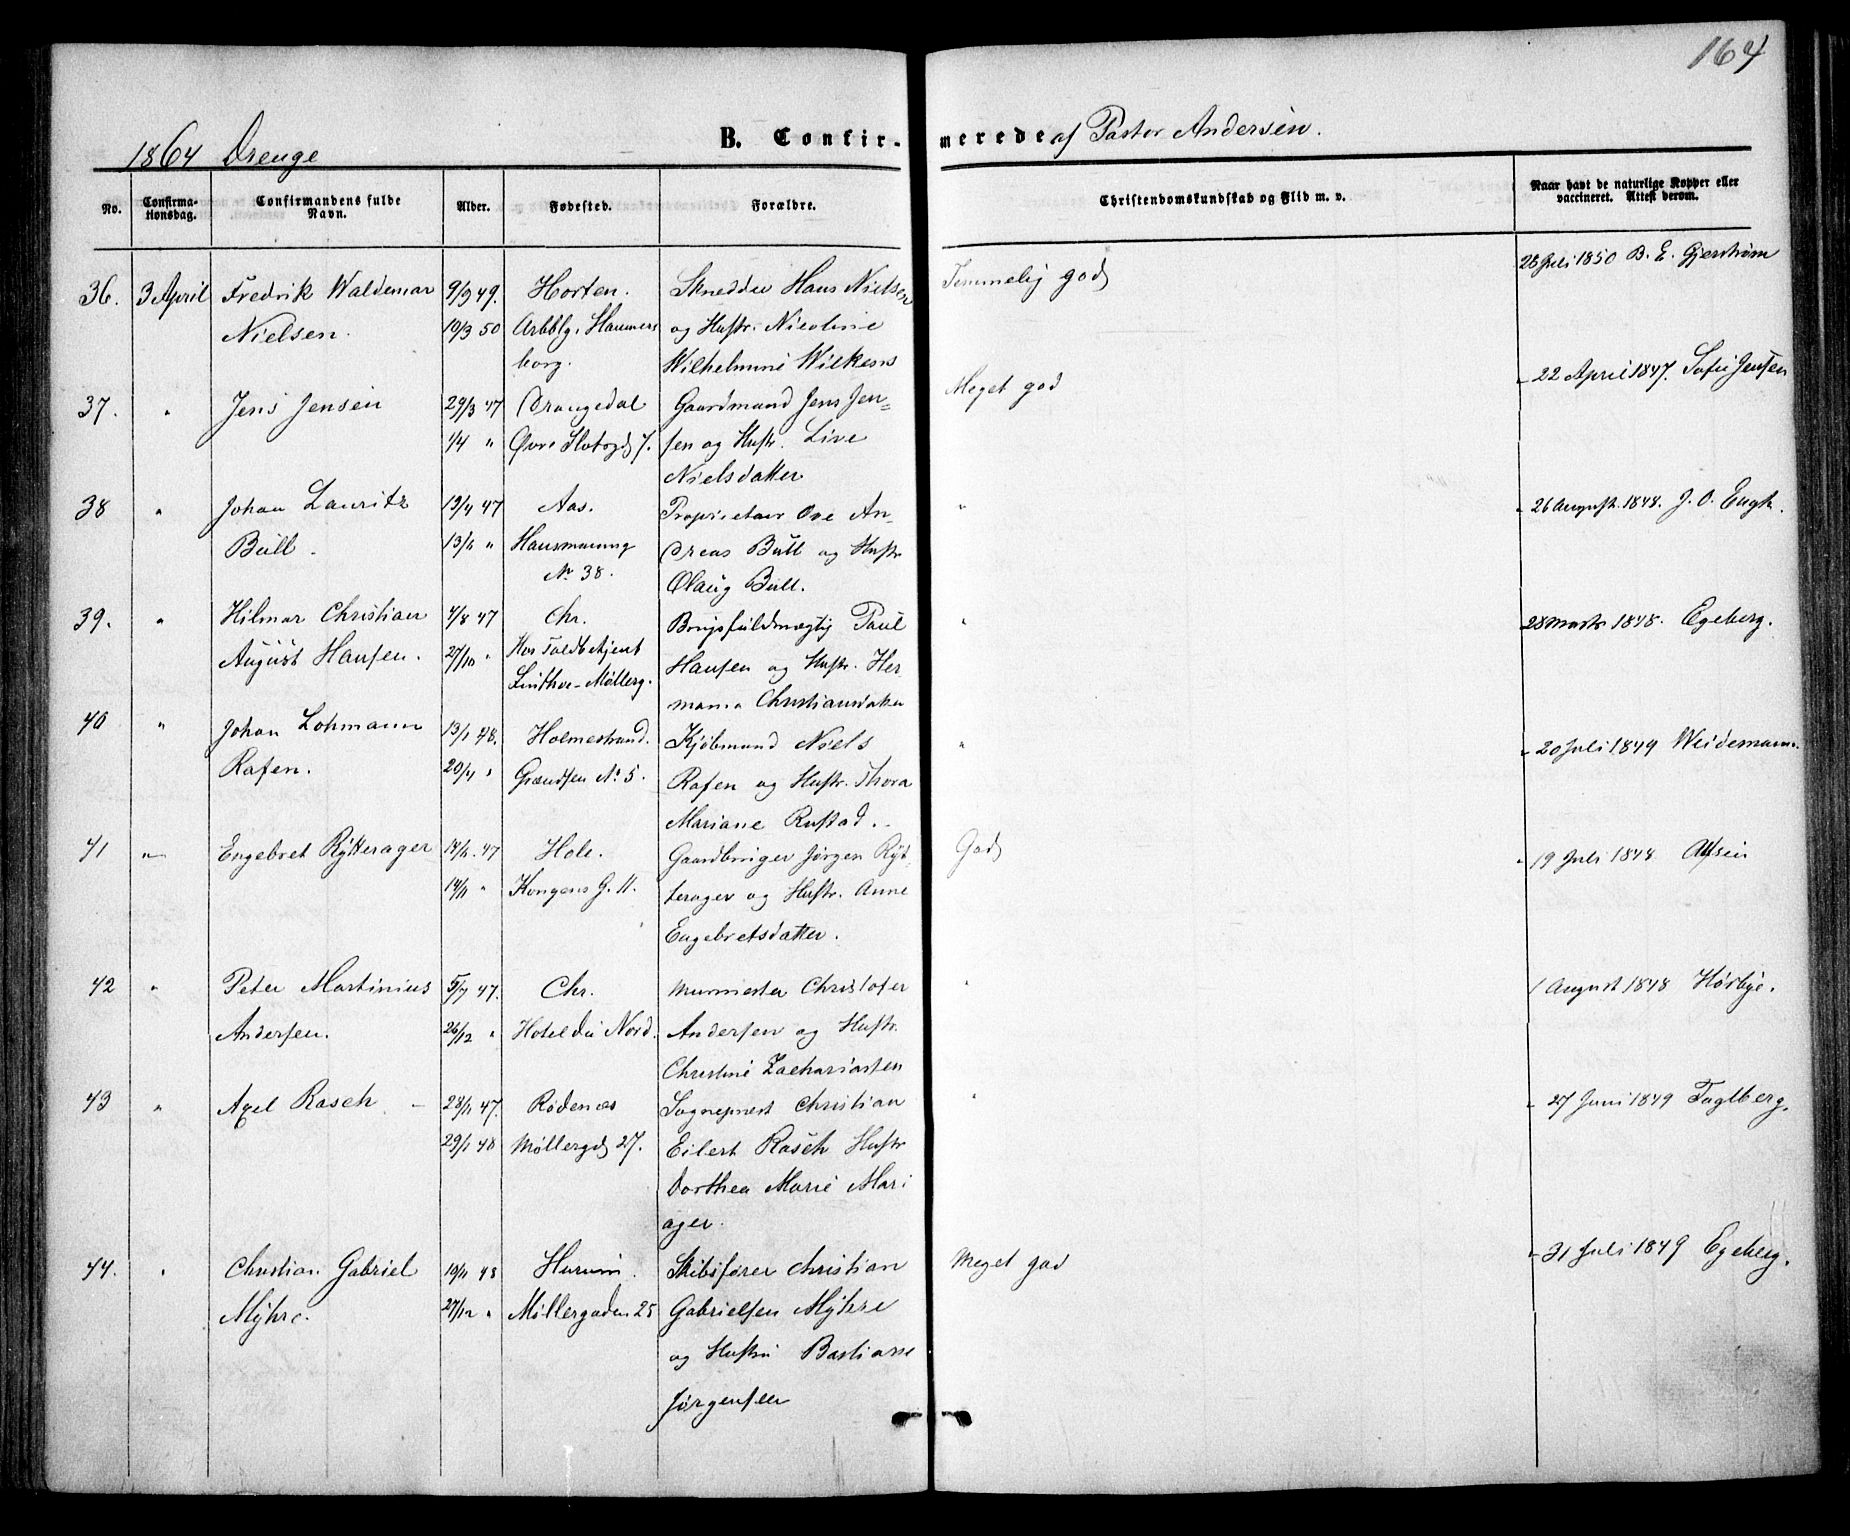 164
1864 Drenge B. Confirmerede af Pastor Andersen.
No. Confirmationsdag. Confirmandens fulde Navn. Alder. Fødested. Forældre. Christendomskundskab og Flid m. v. Naar havt de naturlige Kopper eller vaccineret. Attest derom.
36. 3 April Fredrik Waldemar 9/9 49. Horten. Skredder Hans Nielsen Temmelig god 28 Juli 1850 B. E. Gjerstrøm
Nielsen. 10/3 50 Arbblg. Hammers og Hustr. Nicoline
borg. Wilhelmine Wilkens
37. " Jens Jensen 29/3 47 Drangedal Gaardmand Jens Jen= Meget god " 22 April 1847. Jensen
1/4 " Øvre Slotsgd 7. sen og Hustr. Live
Nielsdatter
38 " Johan Lauritz 47 Aas. Proprietær Ove An= " " 26 August 1848. J. O.
Bull. " Hausmannsg dreas Bull og Hustr
No 38. Olaug Bull.
39. " Hilmar Christian 4/8 47 Chr. Brugsfuldmægtig Paul " 28 Marts 1848. Egeberg.
August Hansen. 27/10 " Hos Toldbetjent Hansen og Hustr. Her
Møllerg. mana Christiansdatter
40 " Johan Lohmann 13/1 48. Holmestrand. Kjøbmand Niels " " 20 Juli 1849 Weidemann.
Rafen. 20/4 " Grændsen No 5. Rafen og Hustr. Thora
Mariane Rustad.
41 " Engebret Rytterager 47 Hole. Gaardbruger Jørgen Ryt God " 19 Juli 1848
14/11 " Kongens G. 11. terager og Hustr. Anne
Engebretsdatter.
42 " Peter Martinius 5/7 47. Chr. Murmester Christofer " 1 August 1848 Hørbye.
Andersen. 26/12 " Hotel du Nord. Andersen og Hustr.
Christine Zachariasen
43 " Axel Rasch 28/11 47. Rødenæs Sognepræst Christian " " 27 Juni 1849
29/1 48 Møllergd 27. Eilert Rasch Hustr
Dorthea Marie Mari
ager.
44. " Christian Gabriel 10/11 48 Hurum. Skibsfører Christian Meget god " 31 Juli 1849 Egeberg.
Myhre. 27/12 " Møllergaden 25 Gabrielsen Myhre
og Hustru Bastiane
Jørgensen